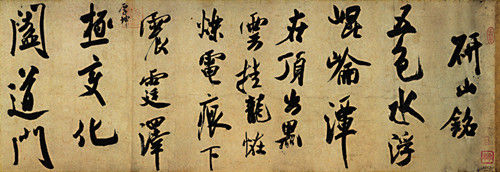 研山銘
五色水浮
崐崘潭
在頂出黑
雲挂龍怪
爍電痕下
震霆澤
厚坤
極變化
闔道門